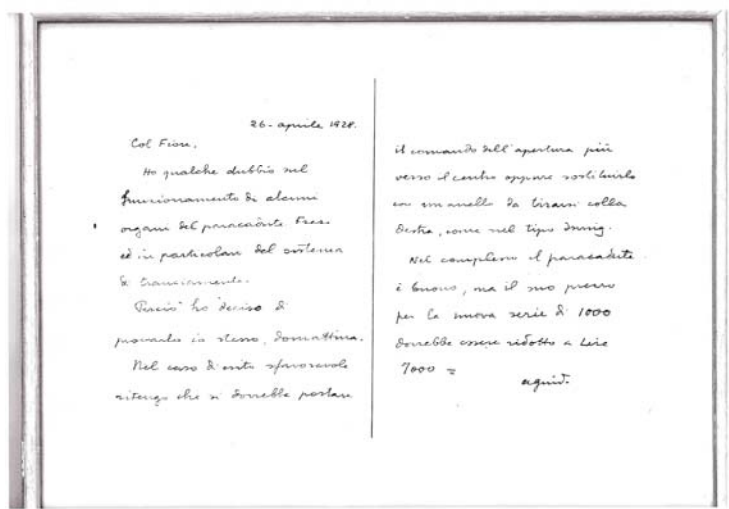 26 - aprile 1928.
Col Fiore,
Ho qualche dubbio sul
funzionamento di alcuni
organi del paracadute Freri
ed in particolare del sistema
di tranciamento.
Perciò ho deciso di
provarlo io stesso, domattina.
Nel caso di esito sfavorevole
ritengo che si dovrebbe portare
il comando dell'apertura più
verso il centro oppure sostituirlo
con un anello da tirarsi colla
destra, come nel tipo Irving.
Nel complesso il paracadute
è buono, ma il suo prezzo
per la nuova serie di 1000
dovrebbe essere ridotto a Lire
7000 =